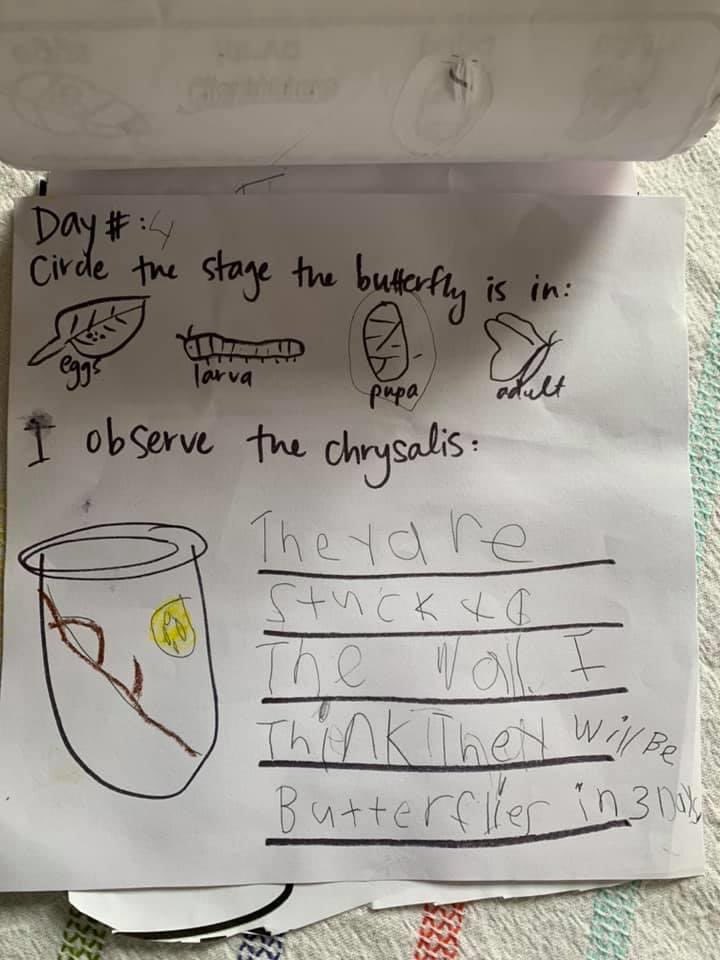 Day #: 4
Circle the stage the butterfly is in:
eggs larva pupa adult
I observe the chrysalis:
They are
stuck to
The Wall. I
Think They will Be
Butterflies in 3 Days